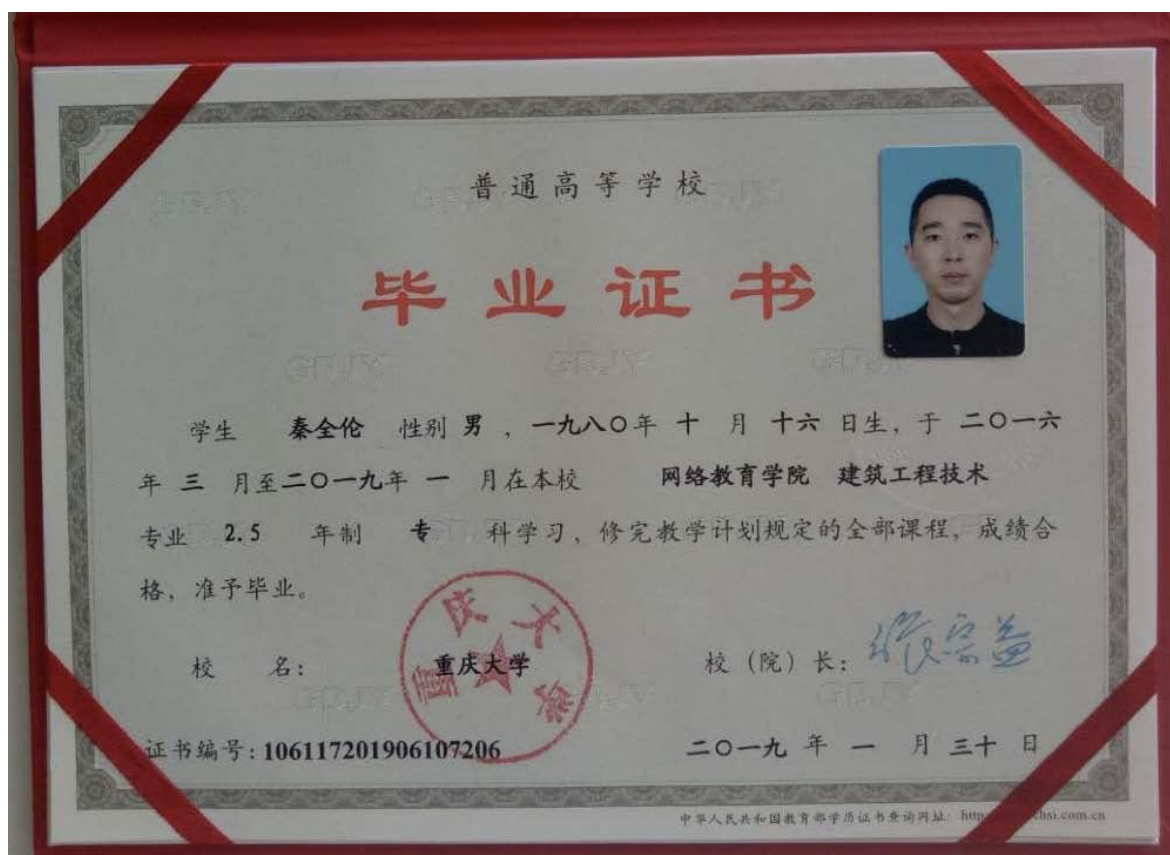 普通高等学校
毕业证书
学生 秦全伦 性别 男 ，一九八〇年 十 月 十六 日生，于 二〇一六
年 三 月至二〇一九年 一 月在本校 网络教育学院 建筑工程技术
专业 2.5 年制 专 科学习，修完教学计划规定的全部课程，成绩合
格，准予毕业。
校 名： 重庆大学 校（院）长： 张宗益
重庆大学
证书编号：106117201906107206 二〇一九 年 一 月 三十 日
中华人民共和国教育部学历证书查询网址：http chsi.com.cn